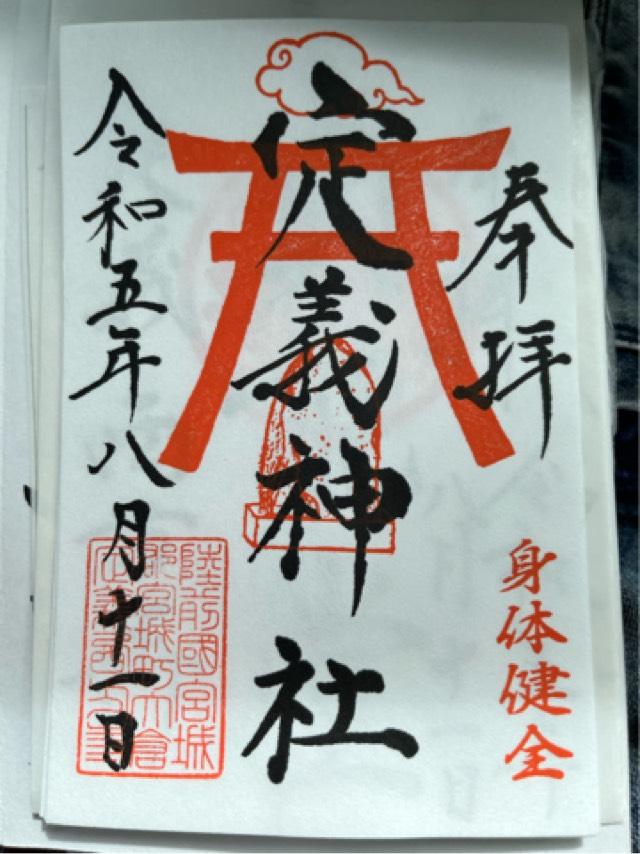 奉拝
身体健全
定義神社
令和五年八月十一日
陸前國宮城
郡宮城町大倉